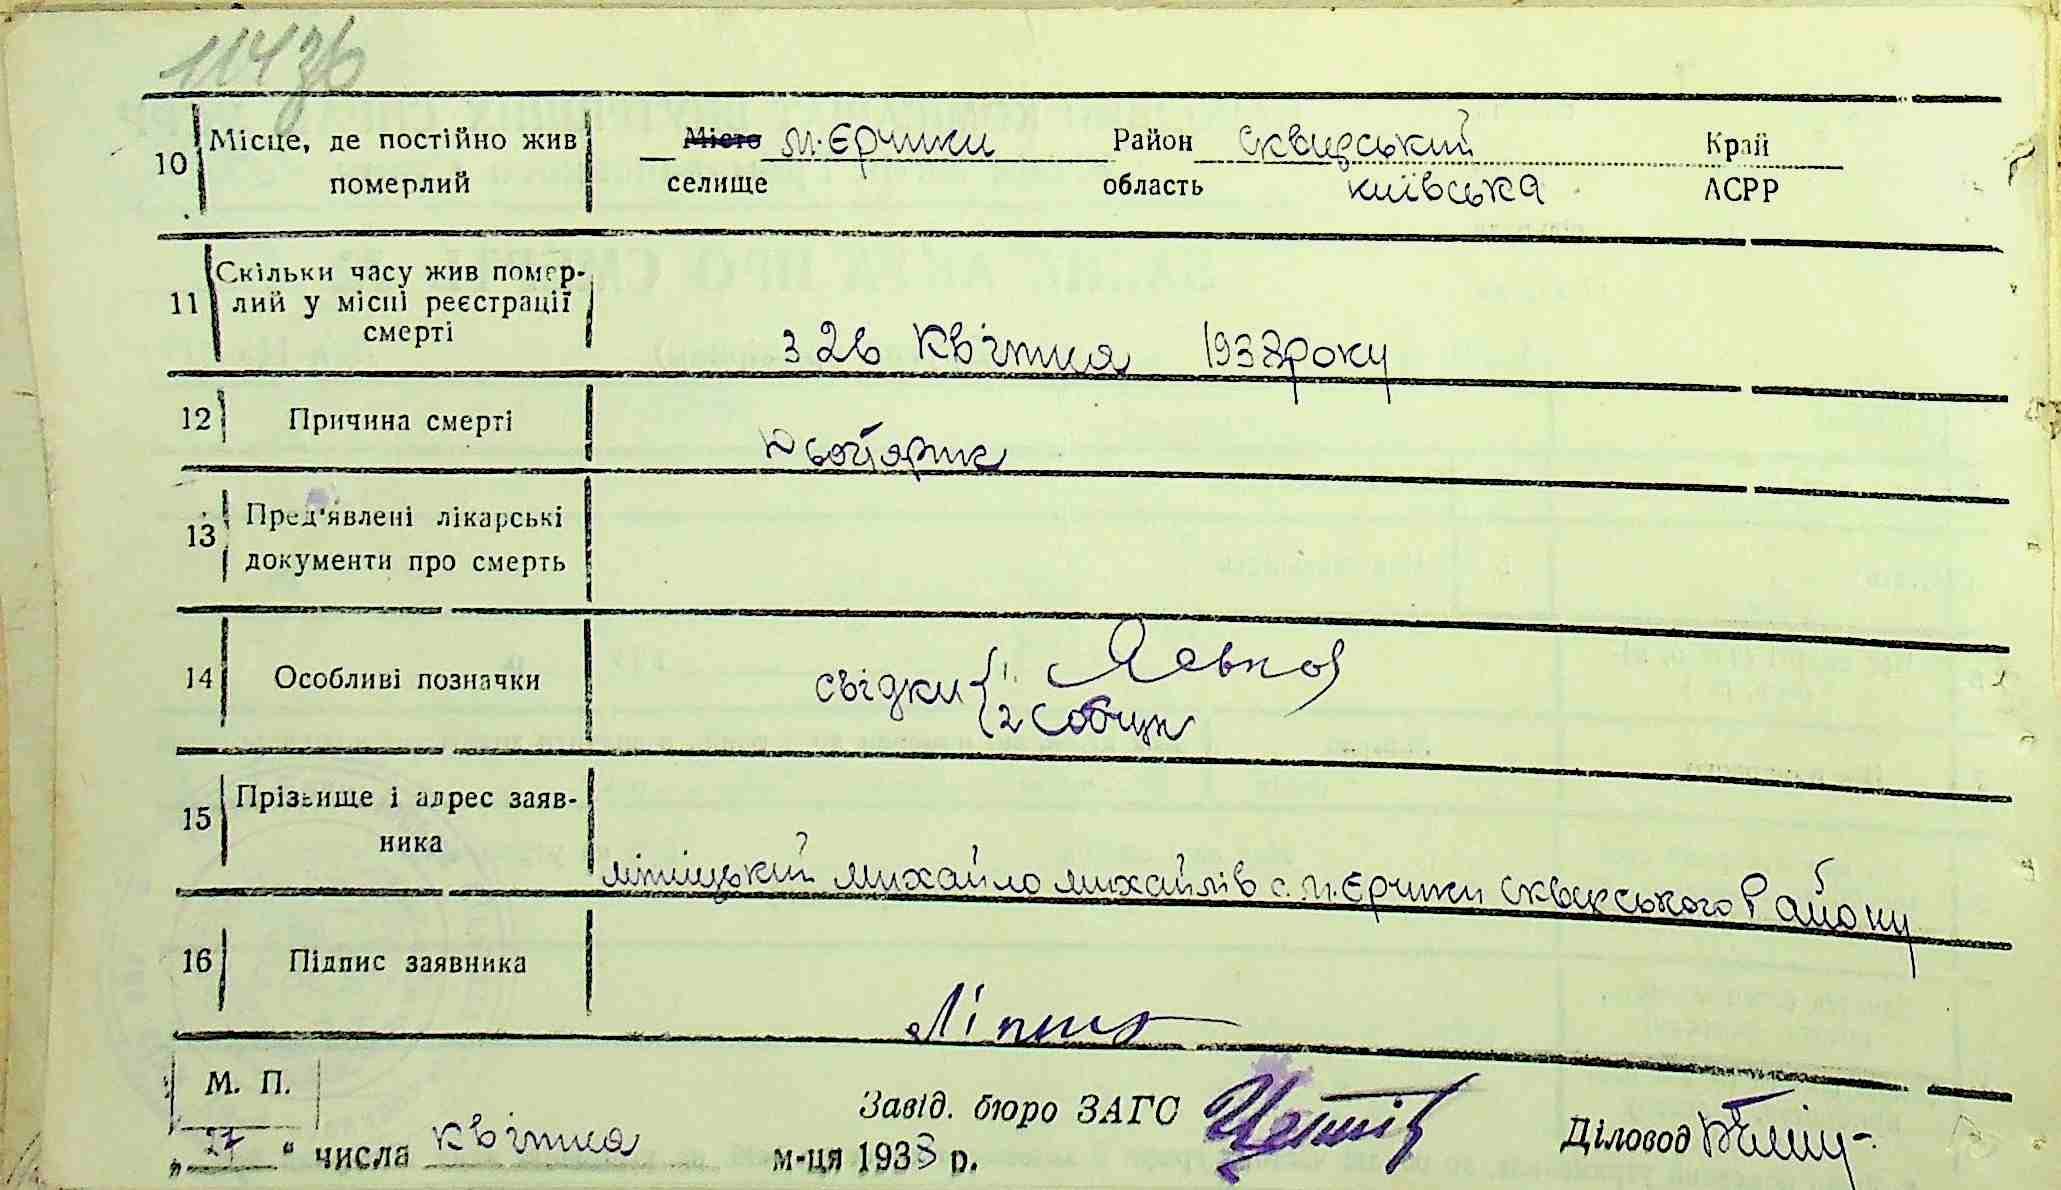 114
10 Місце, де постійно жив померлий
Місто м. Єрчики Район Сквирський Край
селище область київська АСРР
11 Скільки часу жив помер-
лий у місці реєстрації
смерті
з 26 Квітня 1938 року
12 Причина смерті
13 Пред'явлені лікарські
документи про смерть
14 Особливі позначки
свідки { 1.
2
15 Прізвище і адрес заяв-
ника
Ліпіцький михайло михайлів с. м. Єрчики Сквирського Району
16 Підпис заявника
М. П.
Завід. бюро ЗАГС
Діловод
„27" числа квітня м-ця 1938 р.